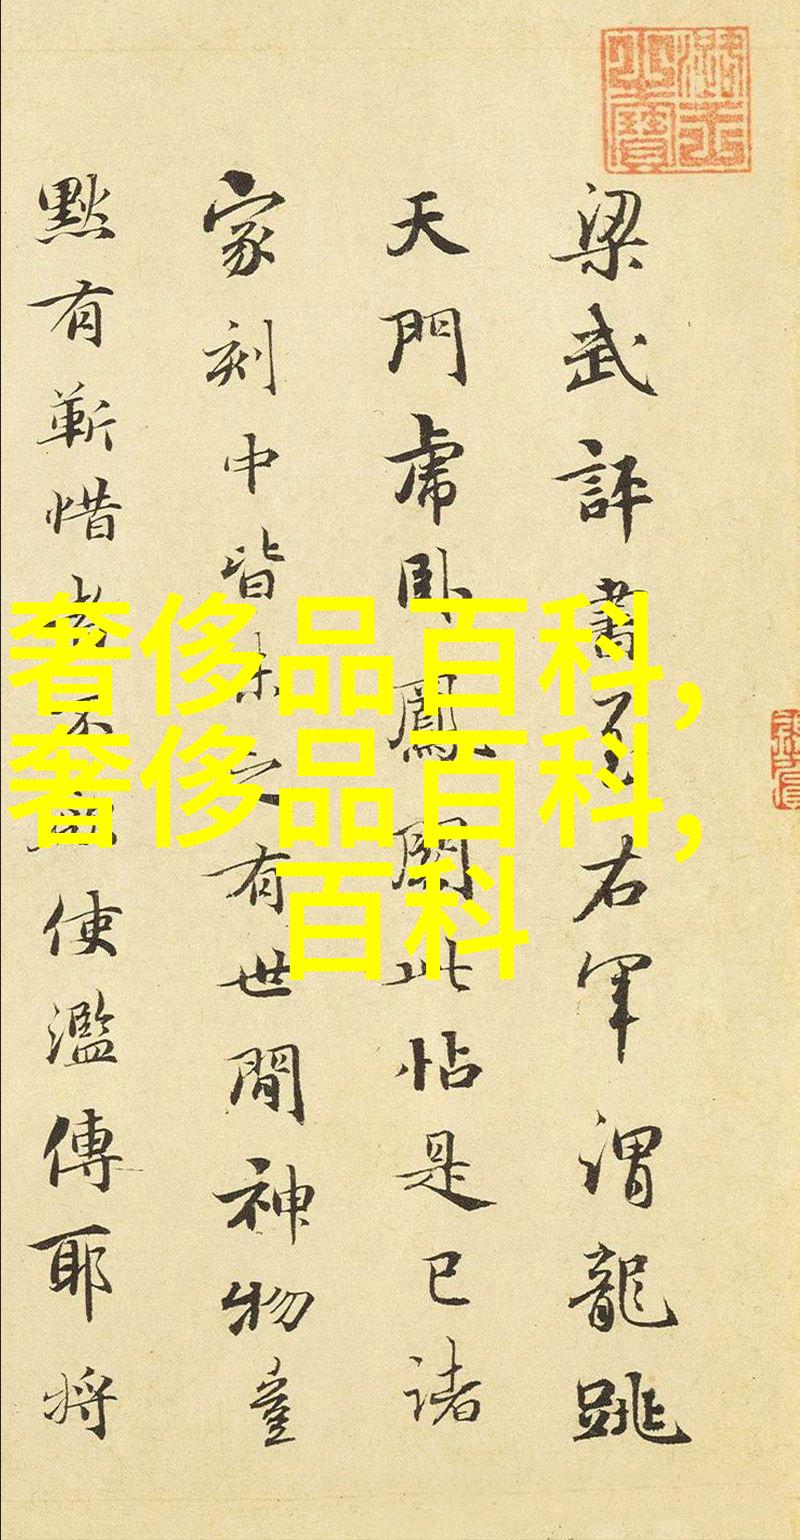 梁武評書至右軍謂龍跳
天門虎卧鳳閣此帖是已諸
家刻中皆未之有世間神物豈
黙有蘄惜者不使濫傳耶將
奢侈品百科,
奢侈品百科,
百科